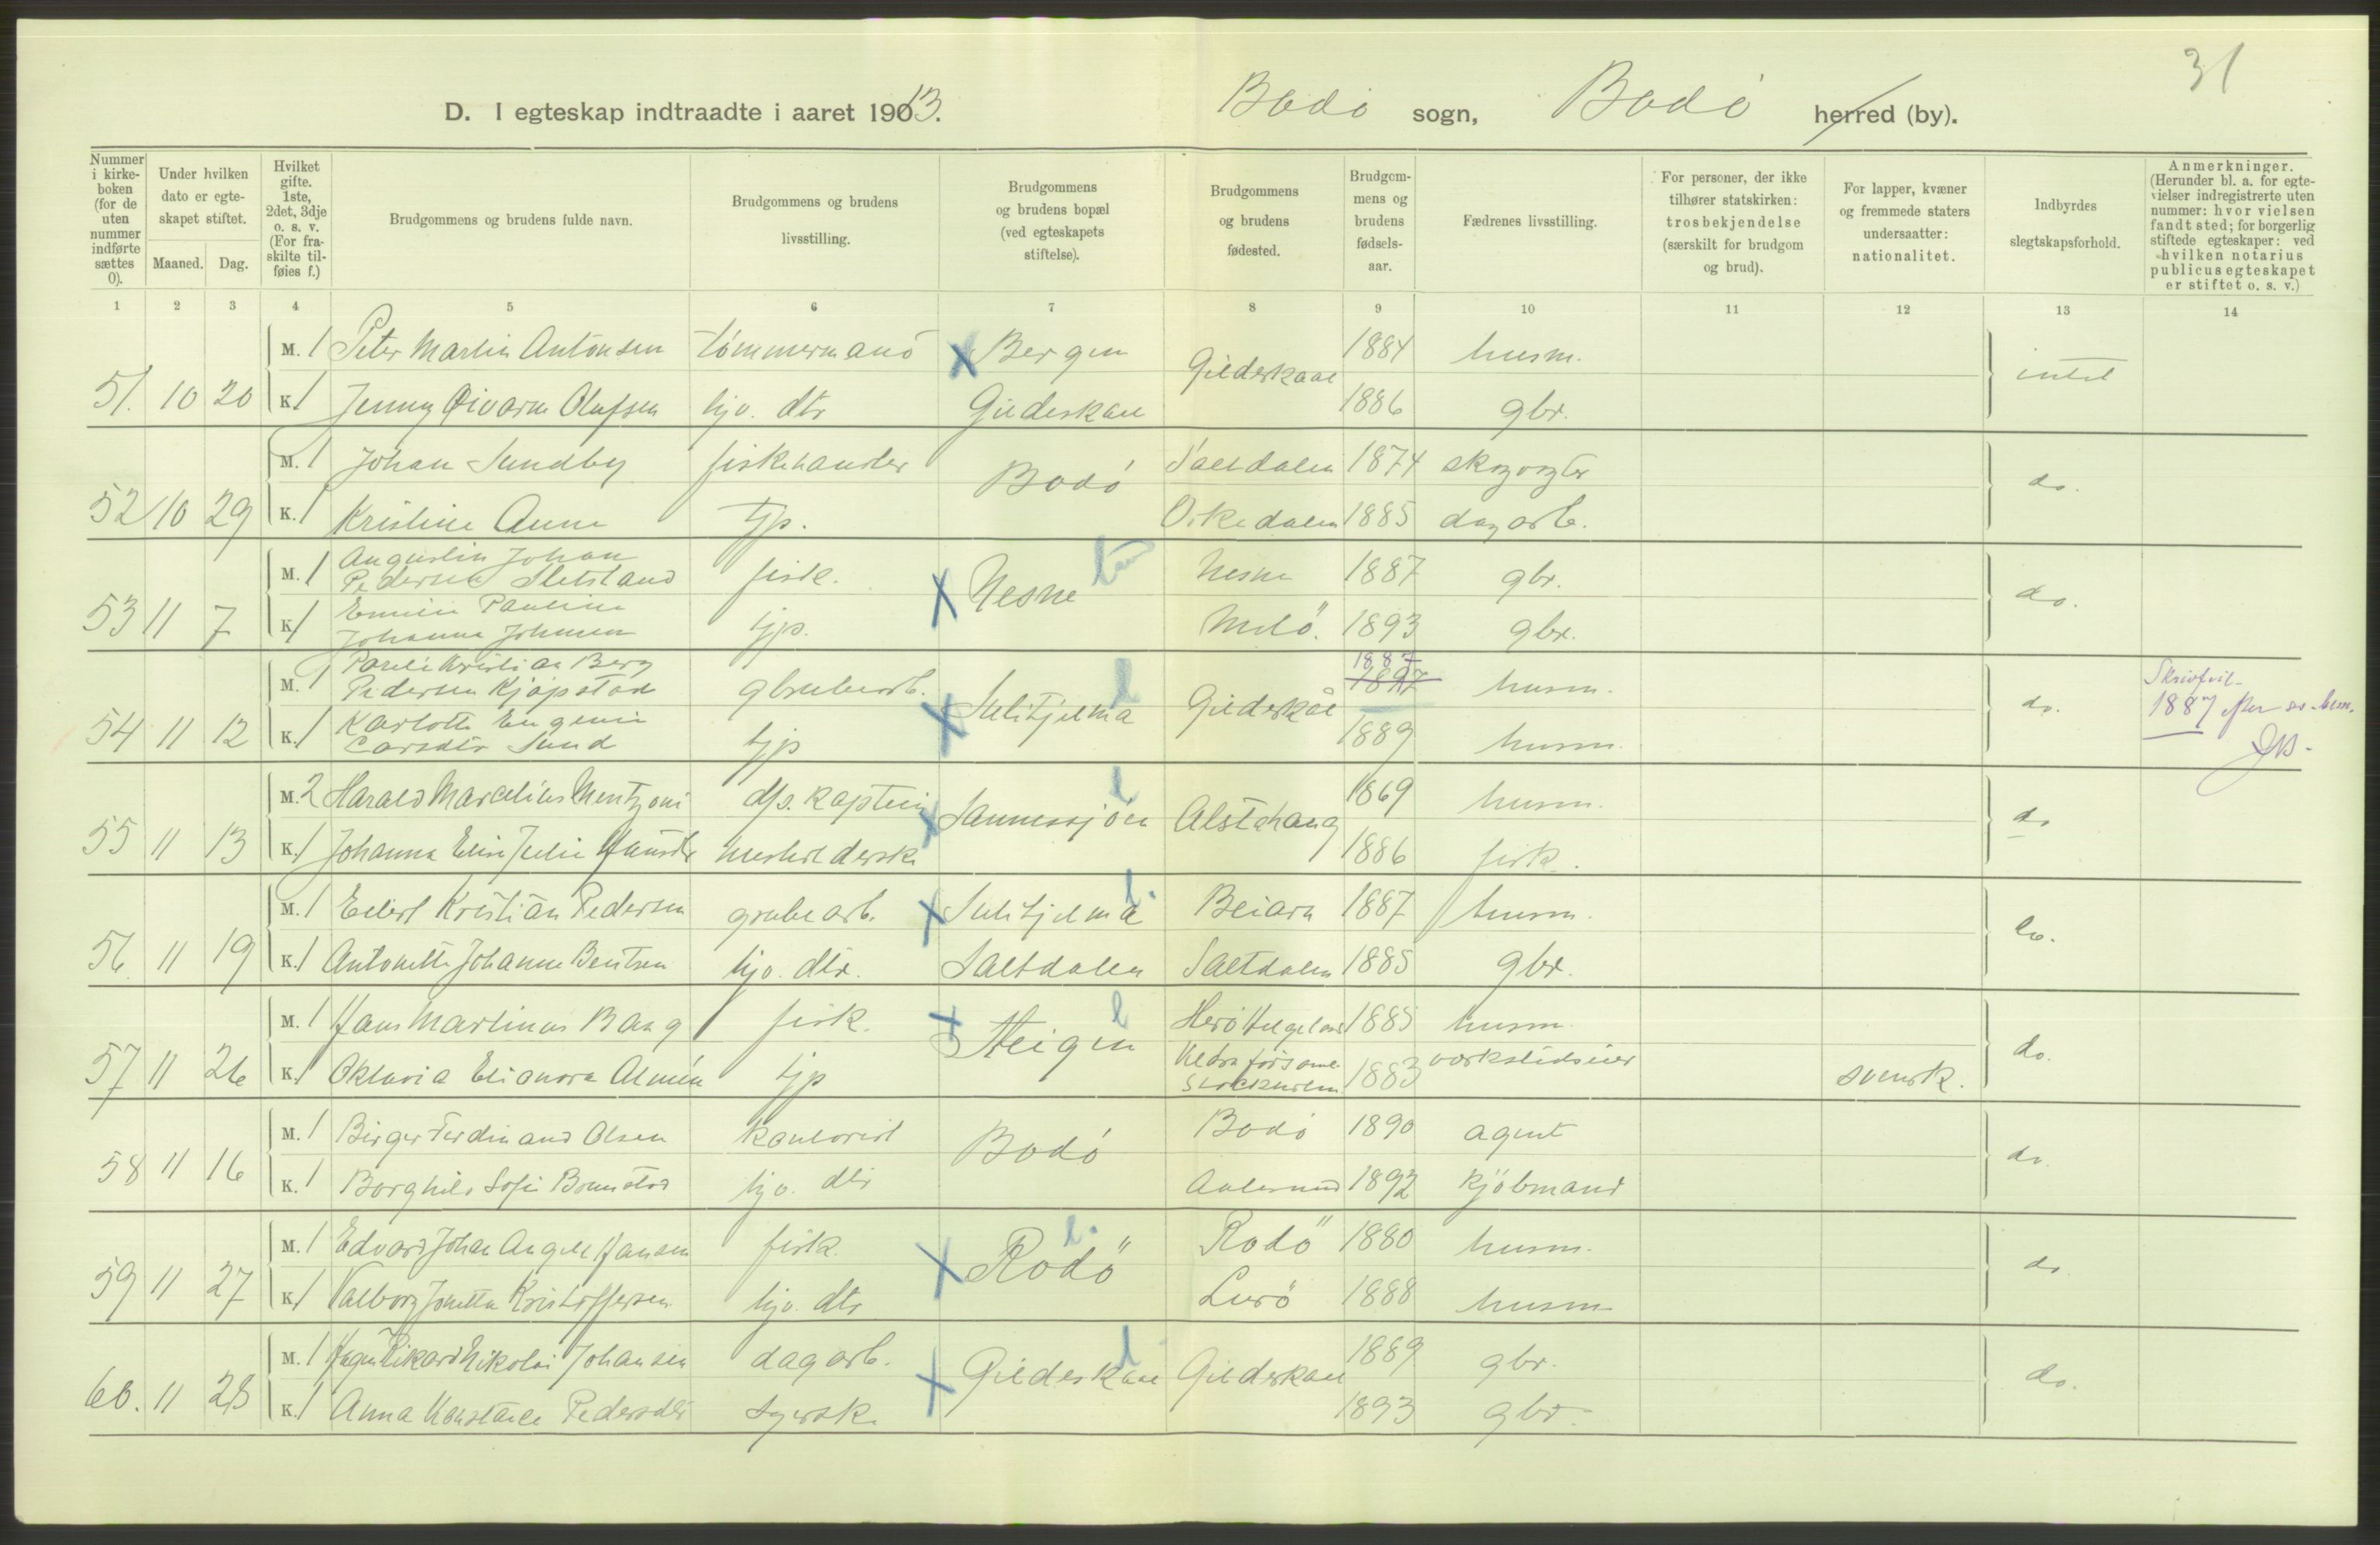 31
D. I egteskap indtraadte i aaret 1913. Bodö sogn, Bodö herred (by).
Nummer i kirkeboken (for de uten nummer indførte sættes 0).
Under hvilken dato er egteskapet stiftet.
Maaned. Dag.
Hvilket gifte. 1ste, 2det, 3dje o. s. v. (For fraskilte tilføies f.)
Brudgommens og brudens fulde navn.
Brudgommens og brudens livsstilling.
Brudgommens og brudens bopæl (ved egteskapets stiftelse).
Brudgommens og brudens fødested.
Brudgommens og brudens fødselsaar.
Fædrenes livsstilling.
For personer, der ikke tilhører statskirken: trosbekjendelse (særskilt for brudgom og brud).
For lapper, kvæner og fremmede staters undersaatter: nationalitet.
Indbyrdes slegtskapsforhold.
Anmerkninger. (Herunder bl. a. for egtevielser indregistrerte uten nummer: hvor vielsen fandt sted; for borgerlig stiftede egteskaper: ved hvilken notarius publicus egteskapet er stiftet o. s. v.)
1 2 3 4 5 6 7 8 9 10 11 12 13 14
M. 1 Peter Martin Antonsen tömmermand Bergen Gildeskaal 1884 husm. intet
51. 10 20 K. 1 Jenny Olufsen hjv. dtr Gildeskaal 1886 gbr.
M. 1 Johan Sundby fiskehandler Bodö Saltdalen 1874 skogvogter do.
52 10 29 K. 1 Kristine Aune tjp. Orkedalen 1885 dagarb.
M. 1 Augustin Johan Pedersen Sletsland fisk. Nesne Nesne 1887 gbr. do.
53 11 7 K. 1 Emilie Pauline Johanna Johnsen tjp. Melö. 1893 gbr.
M. 1 Kristian Berg Pedersen Kjöpstad grubearb. Sulitjelma l Gildeskål 1897 1887 husm. do. Skrivfeil. 1887 efter
54 11 12 K. 1 Karlotte Eugenie Larsdtr Sund tjp 1889 husm.
M. 2 Harald Marcelius Mentzoni d/s. kaptein Sannessjöen l Alstahaug 1869 husm. do
55 11 13 K. 1 Johanna Elise Julie Hansdtr husholderske 1886 fisk.
M. 1 Edert Kristian Pedersen grubearb. Sulitjelma l. Beiarn 1887 husm. do.
56. 11 19 K. 1 Antonette Johanne Bentsen hjv. dtr. Saltdalen Saltdalen 1885 gbr.
M. 1 Hans Martinus Bang fisk. Steigen l Herö Helgeland 1885 husm. do.
57 11 26 K. 1 Oktavia Elionora Almén tjp Stockholm 1883 verkstedseier svensk.
M. 1 Birger Ferdinand Olsen kontorist Bodö Bodö 1890 agent do.
58 11 16 K. 1 Borghild Sofie hjv. dtr Aalesund 1892 kjöbmand
M. 1 Edvard Johan Angell Hansen fisk. Rödö l. Rödö 1880 husm. do
59 11 27 K. 1 Valborg Jonetta Kristoffersen. hjv. dtr Lurö 1888 husm
M. 1 Hagen Rikard Nikolai Johansen dagarb. Gildeskaal l Gildeskaal 1889 gbr. do.
60. 11 28 K. 1 Anna Konstance Pedersdtr syerske 1893 gbr.